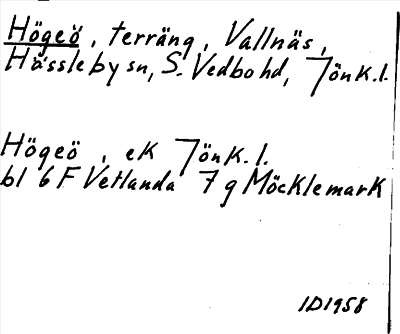 Högeö, terräng, Vallnäs,
Hässleby sn, S. Vedbo hd, Jönk.l.
Högeö, ek Jönk.l.
bl 6 F Vetlanda 7 g Möcklemark
ID1958